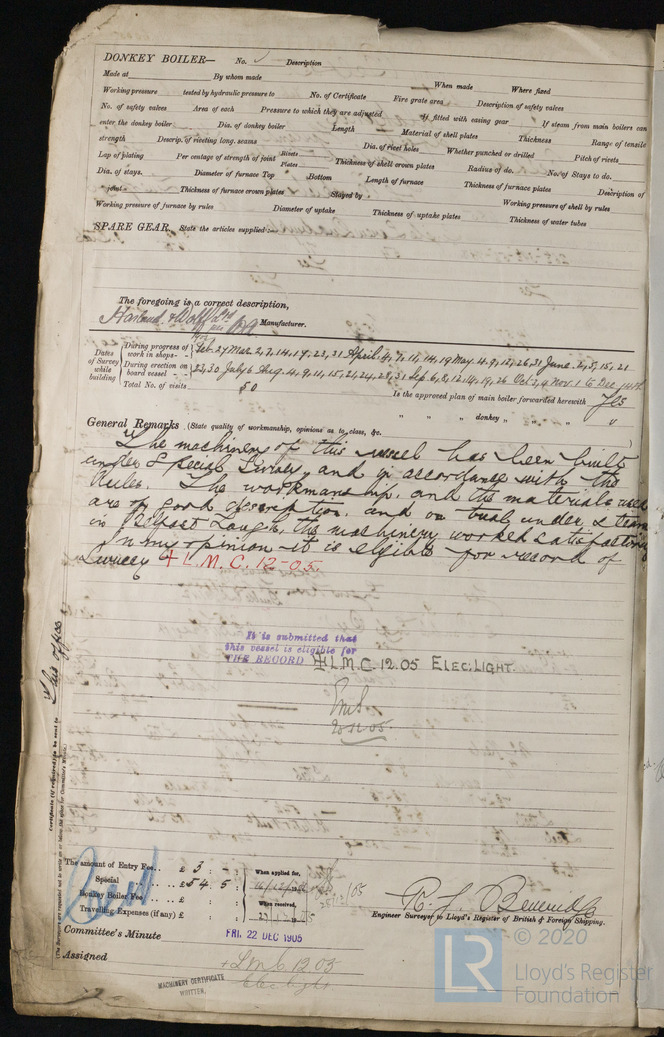 DONKEY BOILER— No. Description
Made at By whom made When made Where fixed
Working pressure tested by hydraulic pressure to No. of Certificate Fire grate area Description of safety valves
No. of safety valves Area of each Pressure to which they are adjusted If fitted with easing gear If steam from main boilers can
enter the donkey boiler Dia. of donkey boiler Length Material of shell plates Thickness Range of tensile
strength Descrip. of riveting long. seams Dia. of rivet holes Whether punched or drilled Pitch of rivets
Lap of plating Per centage of strength of joint Rivets Plates Thickness of shell crown plates Radius of do. No. of Stays to do.
Dia. of stays. Diameter of furnace Top Bottom Length of furnace Thickness of furnace plates Description of
joint Thickness of furnace crown plates Stayed by Working pressure of shell by rules
Working pressure of furnace by rules Diameter of uptake Thickness of uptake plates Thickness of water tubes
SPARE GEAR. State the articles supplied:—
The foregoing is a correct description,
Harland & Wolff Ltd Manufacturer.
Dates of Survey while building
During progress of work in shops - - Feb. 27 Mar. 2, 7, 14, 17, 23, 31 April 4, 7, 11, 14, 19 May 4, 9, 12, 26, 31 June 2, 5, 15, 21
During erection on board vessel - - - 22, 30 July 6 Aug. 4, 9, 11, 15, 21, 24, 28, 31 Sep. 6, 8, 12, 14, 19, 26 Oct 3, 4 Nov. 1 to Dec 14th
Total No. of visits 50
Is the approved plan of main boiler forwarded herewith Yes
" " " donkey " " "
General Remarks (State quality of workmanship, opinions as to class, &c.
The machinery of this vessel has been built
under Special Survey, and in accordance with the
Rules. The workmanship, and the materials used
are of good description, and on trial under steam
in Belfast Lough, the machinery worked satisfactorily
In my opinion it is eligible for record of
Survey + L.M.C. 12-05.
It is submitted that
this vessel is eligible for
THE RECORD + L.M.C. 12.05 ELEC: LIGHT.
Certificate (if required) to be sent to This office
(The Surveyors are requested not to write on or below the space for Committee's Minute.)
The amount of Entry Fee . . £ 3 : :
Special . . . £ 54 : 5 :
Donkey Boiler Fee . . . £ : :
Travelling Expenses (if any) £ : :
When applied for,
When received,
Engineer Surveyor to Lloyd's Register of British & Foreign Shipping.
Committee's Minute FRI. 22 DEC 1905
Assigned + L.M.C. 12.05
Elec. light
MACHINERY CERTIFICATE
WRITTEN.
LR © 2020
Lloyd's Register
Foundation